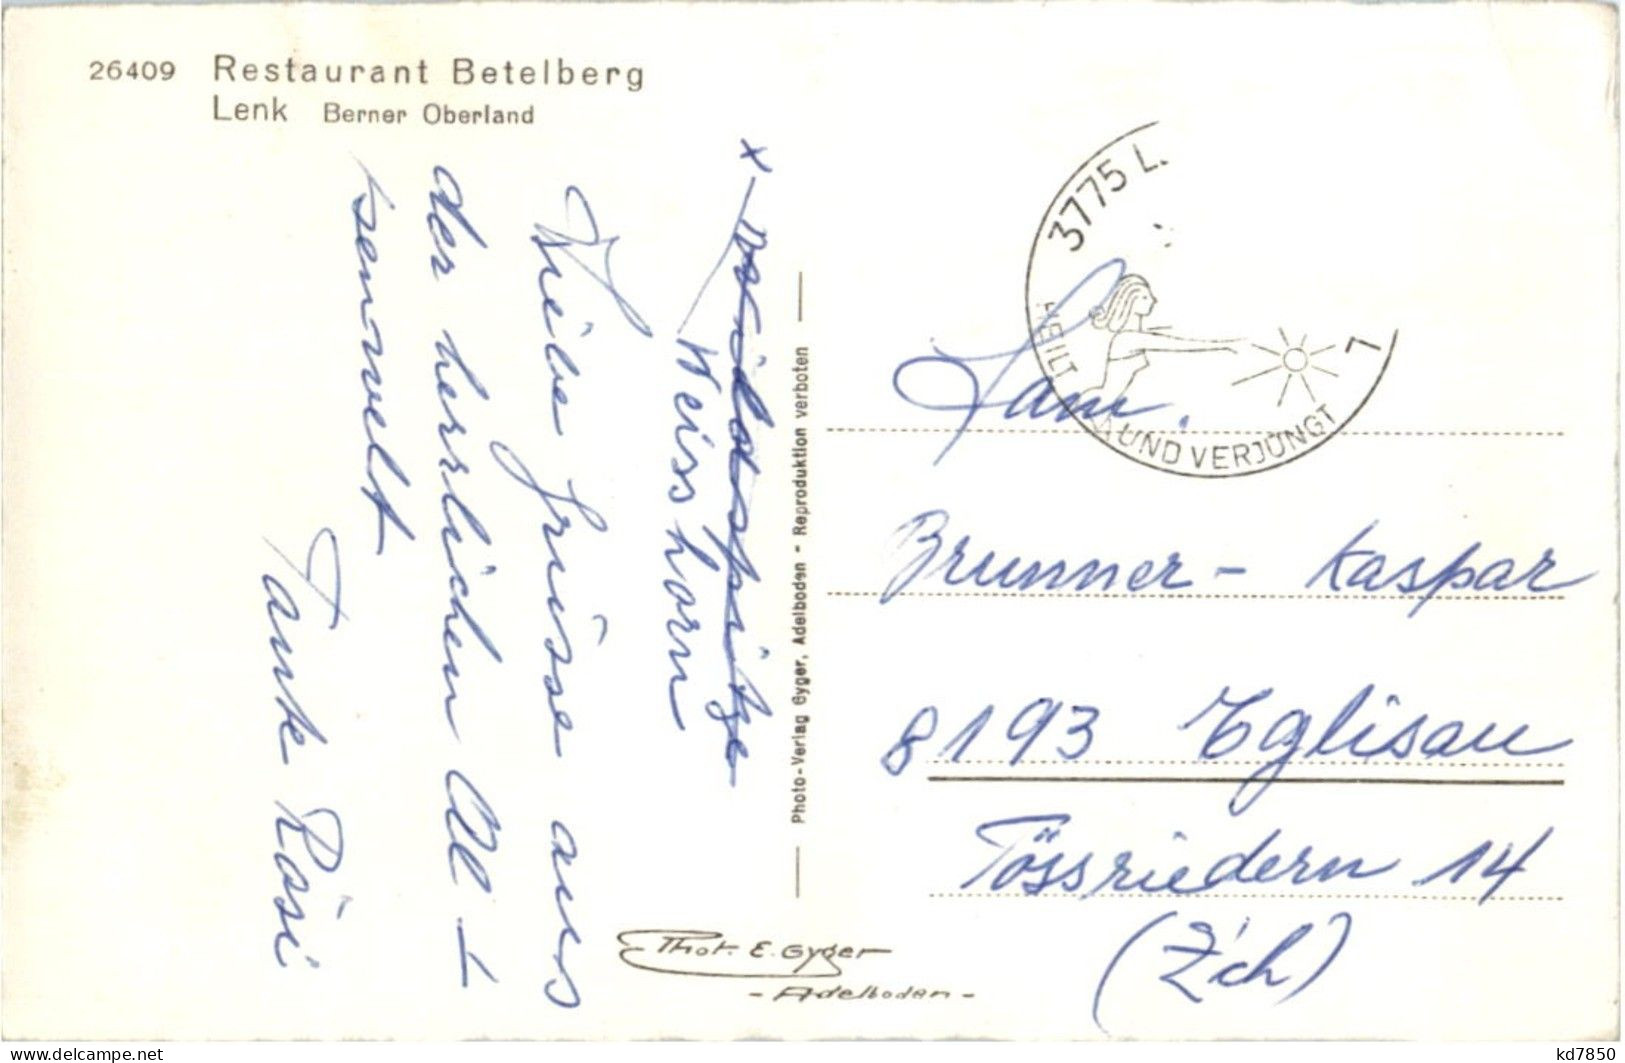 26409 Restaurant Betelberg
Lenk Berner Oberland
x Wildspitze
Weisshorn
Liebe Grüsse aus
der herrlichen All-
penwelt
Tante Rösi
Photo-Verlag Gyger, Adelboden - Reproduktion verboten
Phot. E. Gyger
- Adelboden -
3775 L.
HEILT UND VERJÜNGT
Fam.
Brunner - Kaspar
8193 Eglisau
Tössriedern 14
(Z'ch)
kd7850